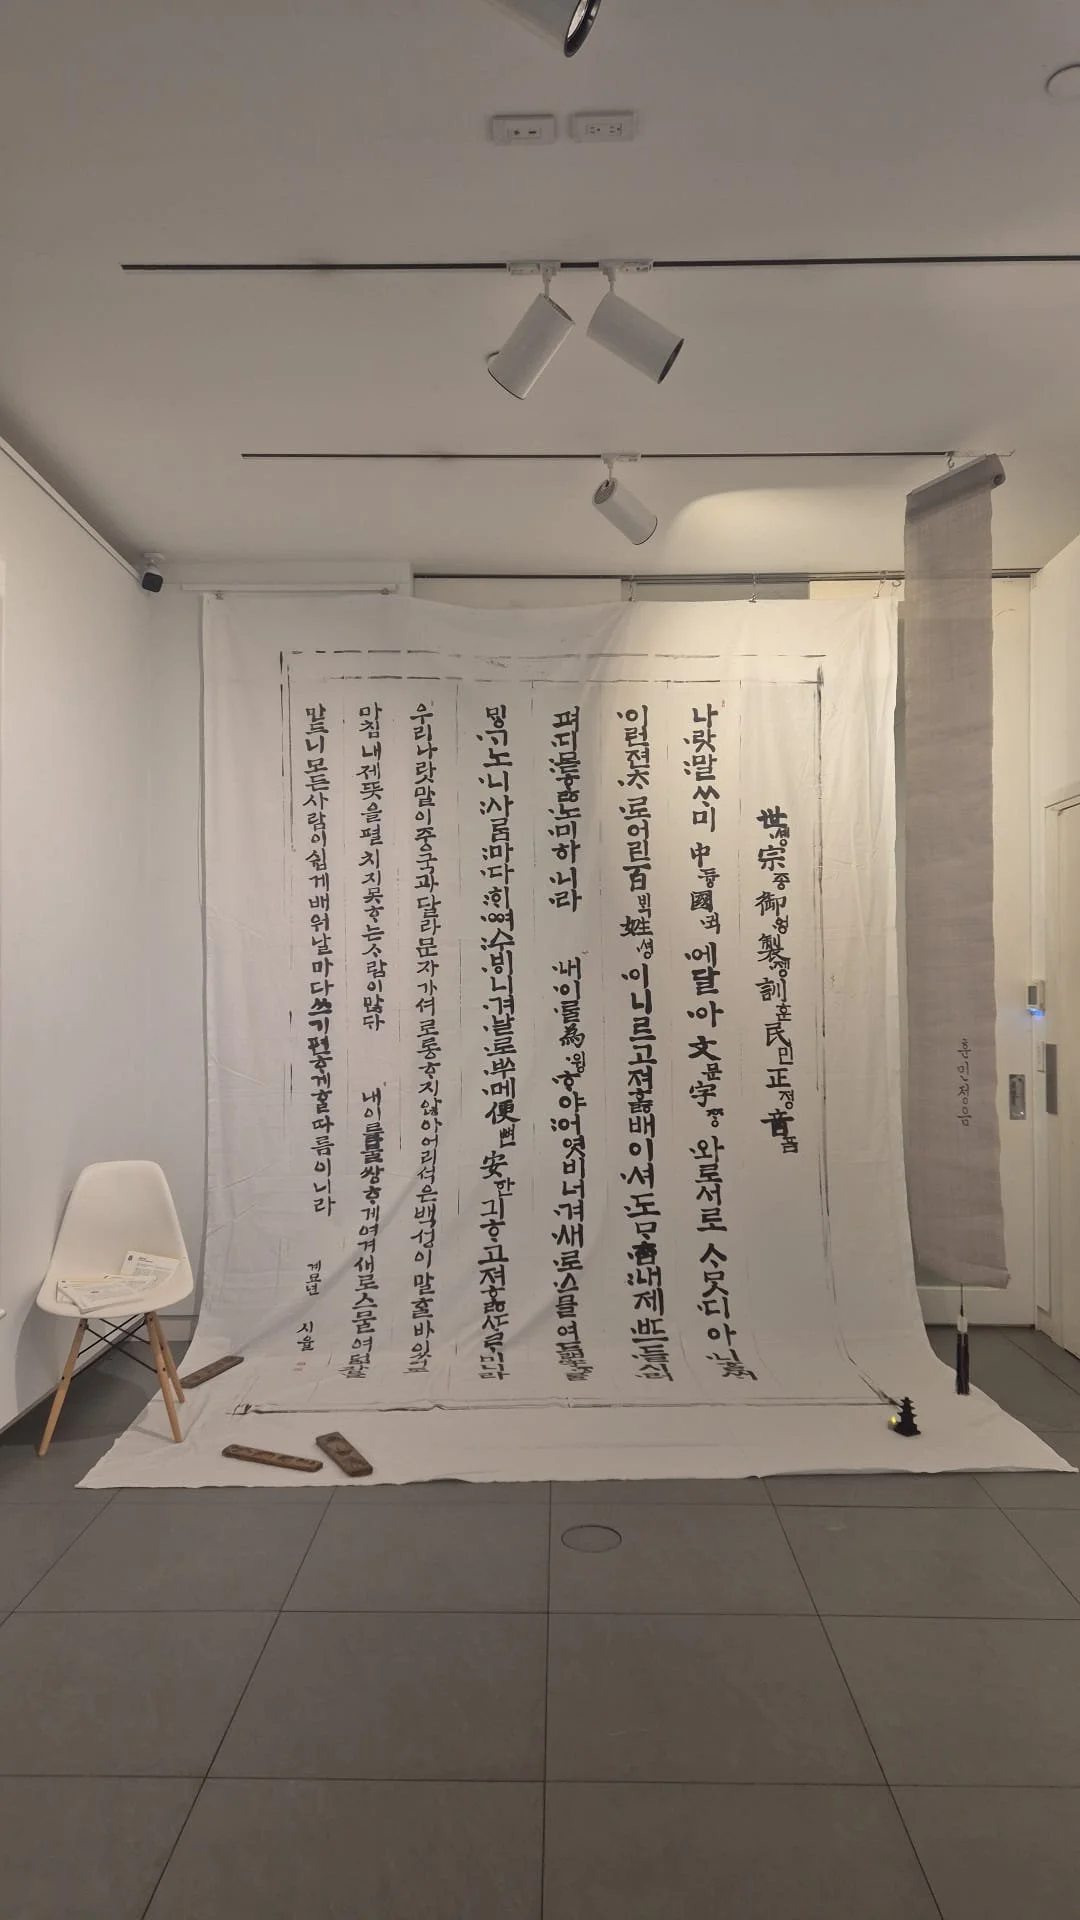 世솅宗종御엉製졩訓훈民민正정音흠
나·랏:말ᄊᆞ미 中듕國귁 에달·아 文문字ᄍᆞᆼ 와로서로 ᄉᆞᄆᆞᆺ디아·니ᄒᆞᆯᄊᆡ
·이런젼·ᄎᆞ·로어린百·ᄇᆡᆨ姓·셩·이니르·고·져·홇·배이·셔·도ᄆᆞᄎᆞᆷ:내제·ᄠᅳ·들시·러
펴·디:몯ᄒᆞᇙ·노·미하·니·라 ·내·이·ᄅᆞᆯ為·윙·ᄒᆞ·야:어엿·비너·겨·새·로·스·믈여·듧ᄍᆞᆼ·ᄅᆞᆯ
ᄆᆡᇰ·ᄀᆞ노·니:사ᄅᆞᆷ:마·다:ᄒᆡ·ᅇᅧ:수·ᄫᅵ니·겨·날·로·ᄡᅮ·메便뼌安한·킈ᄒᆞ·고·져ᄒᆞᇙᄯᆞᄅᆞ·미니·라
우리나랏말이중국과달라문자가셔로통ᄒᆞ지않아어리석은백성이말ᄒᆞᆯ바있고
마침내제뜻을펼치지못ᄒᆞ는ᄉᆞ람이많다 내이를불쌍ᄒᆞ게여겨새로스물여덟ᄌᆞ를
만드니모든사람이쉽게배워날마다쓰기편ᄒᆞ게ᄒᆞᆯ따름이니라
계묘년 시율
훈민정음